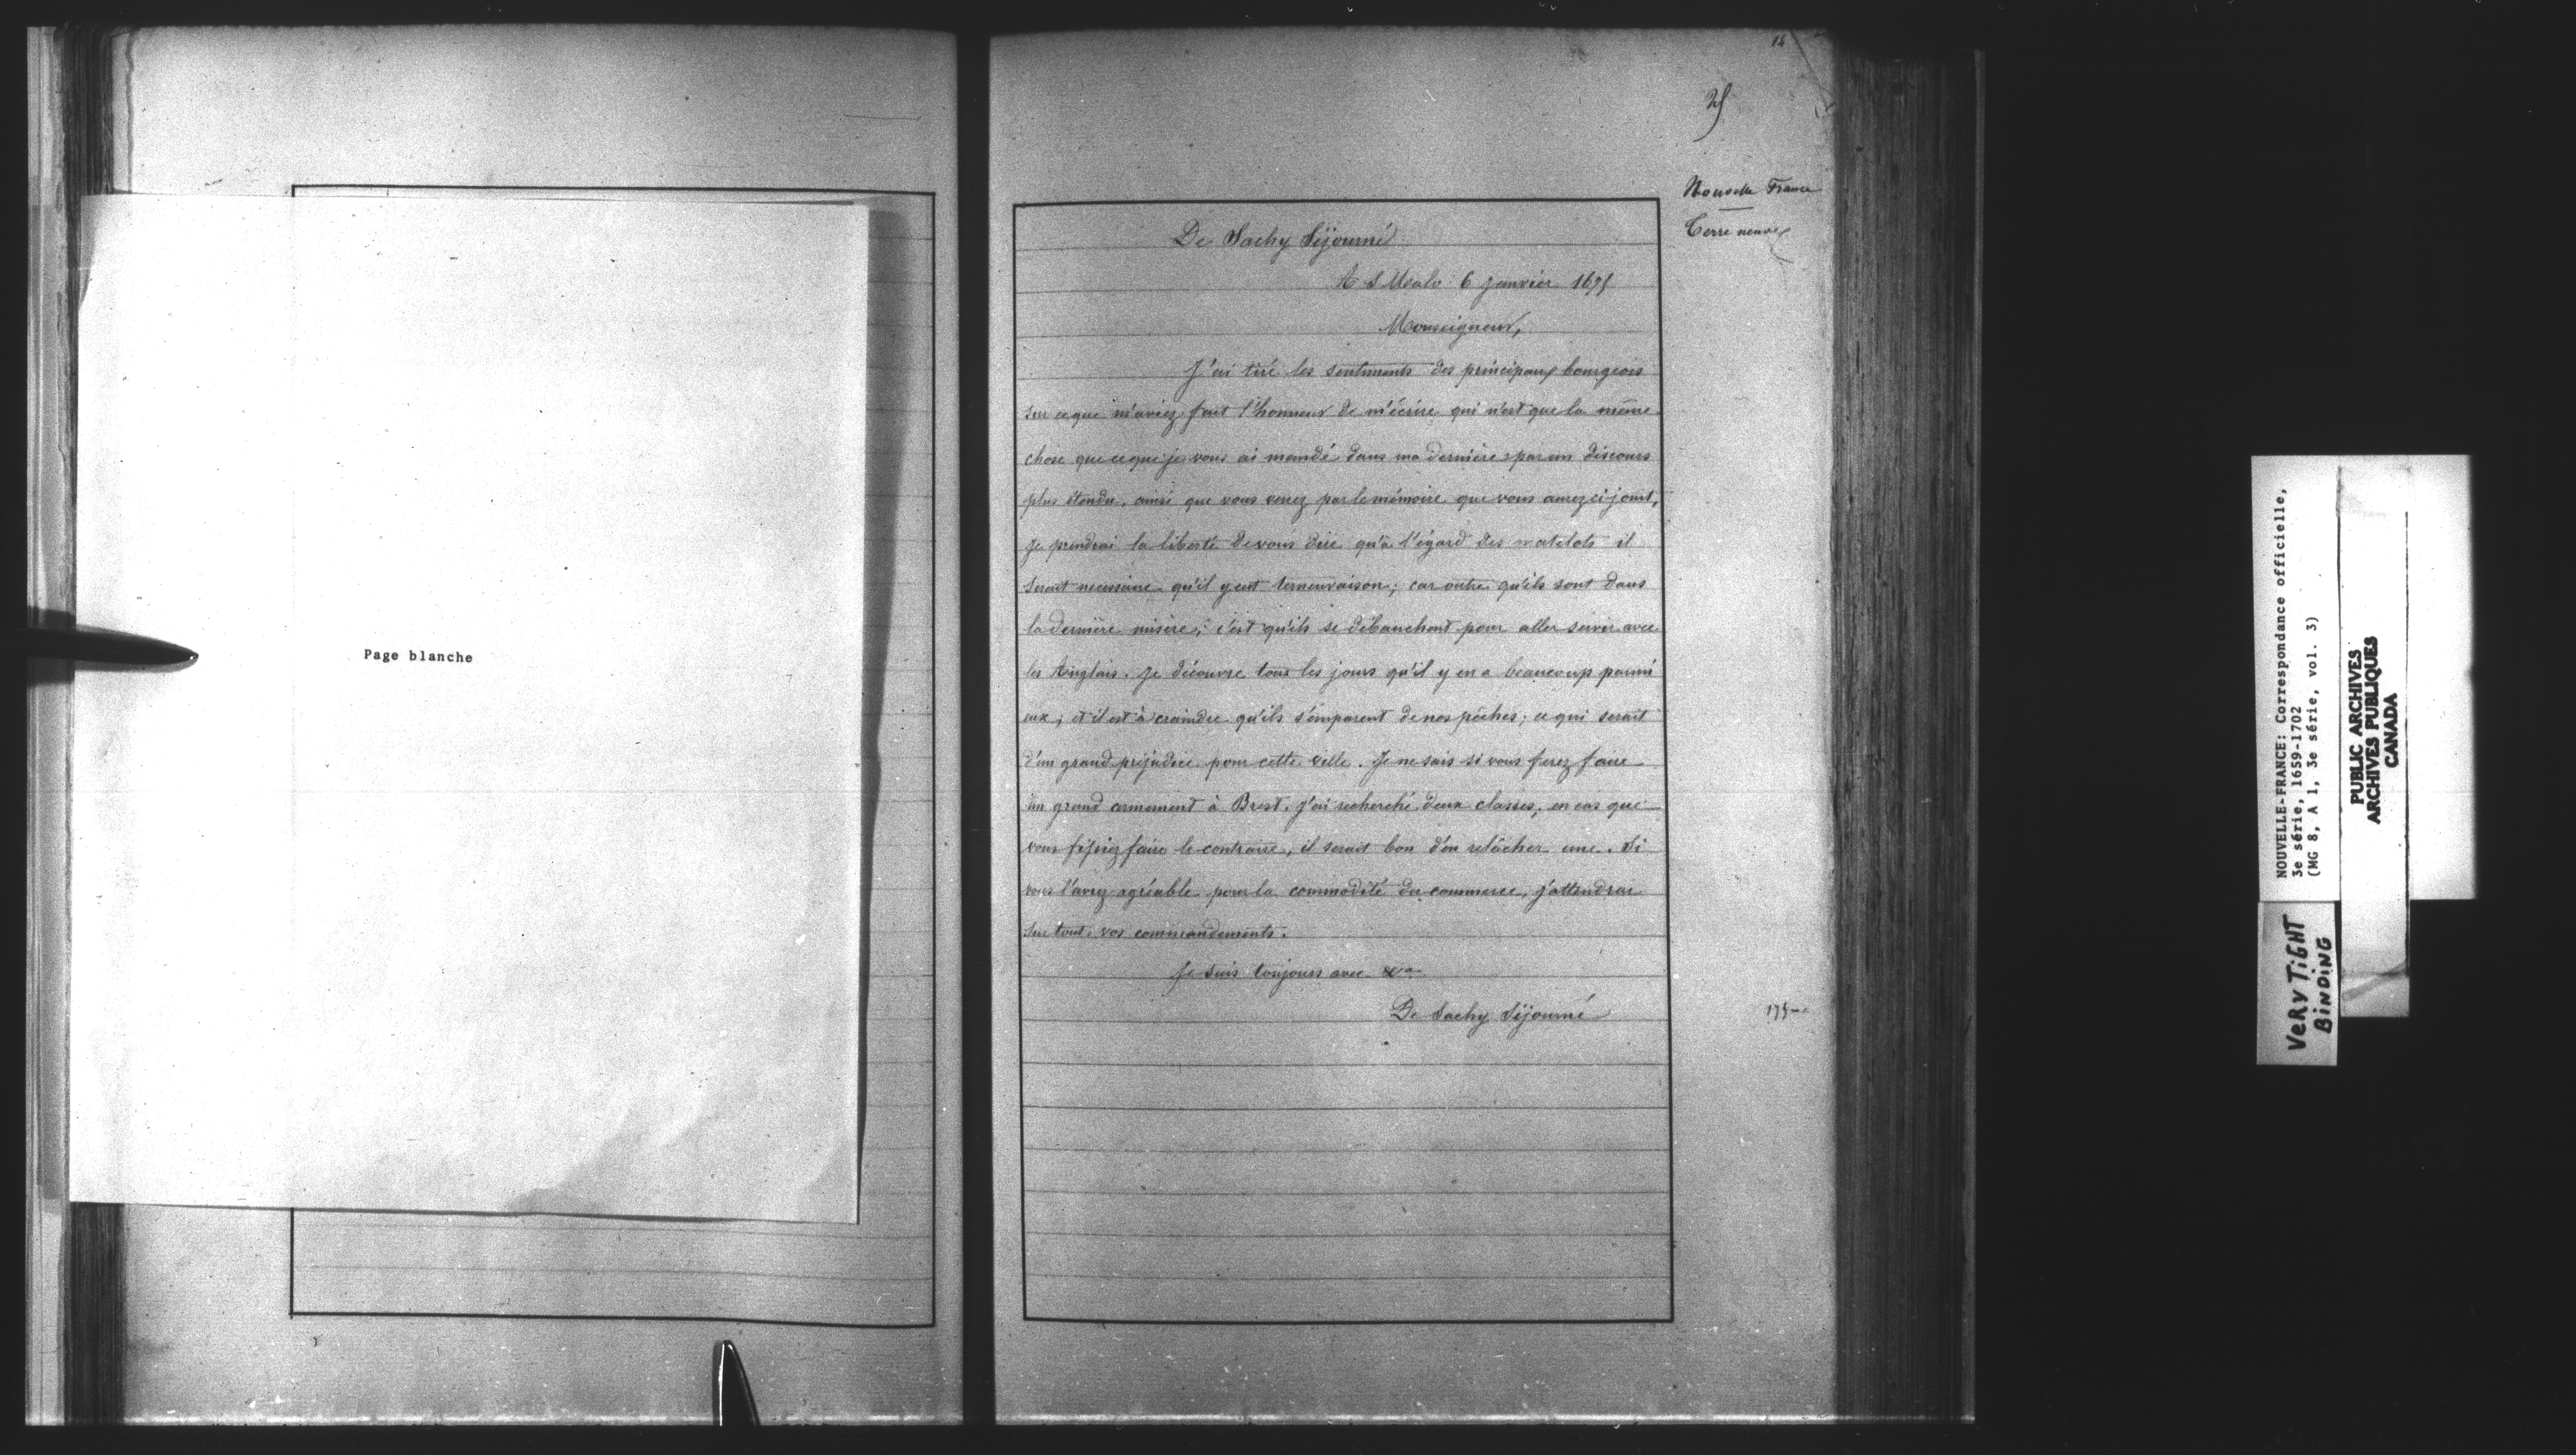 Page blanche
14
25
Nouvelle France
Terre neuve
De Sachy Séjourné
A S Malo 6 janvier 1695
Monseigneur,
J'ai tiré les sentiments des principaux bourgeois
sur ce que m'aviez fait l'honneur de m'écrire qui n'est que la même
chose que ce que je vous ai mandé dans ma dernière par un discours
plus étendu, ainsi que vous verrez par le mémoire que vous aurez ci-joint,
Je prendrai la liberté de vous dire qu'à l'égard des matelots il
serait necessaire qu'il y eut terneuvaison; car outre qu'ils sont dans
la dernière misère, c'est qu'ils se débauchent pour aller servir avec
les Anglais. Je découvre tous les jours qu'il y en a beaucoup parmi
eux; et il est à craindre qu'ils s'emparent de nos pêches; ce qui serait
d'un grand préjudice pour cette ville. Je ne sais si vous ferez faire
un grand armement à Brest. J'ai recherché deux classes, en cas que
vous fissiez faire le contraire, il serait bon d'en relâcher une. Si
vous l'avez agréable pour la commodité du commerce, j'attendrai
sur tout, vos commandements.
Je suis toujours avec &a
De Sachy Séjourné
NOUVELLE-FRANCE: Correspondance officielle,
3e série, 1659-1702
(MG 8, A 1, 3e série, vol. 3)
PUBLIC ARCHIVES
ARCHIVES PUBLIQUES
CANADA
VERY TIGHT
BINDING